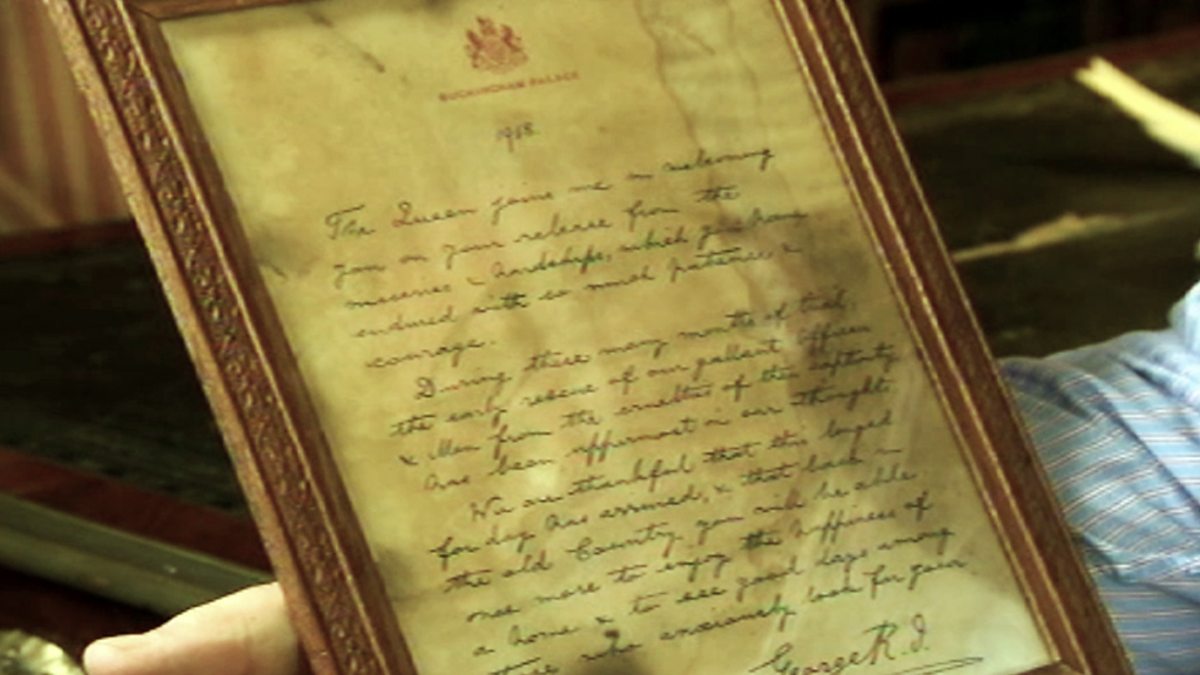 BUCKINGHAM PALACE
1918.
The Queen joins me in welcoming
you on your release from the
miseries & hardships, which you have
endured with so much patience &
courage.
During these many months of trial,
the early rescue of our gallant Officers
& Men from the cruelties of their captivity
has been uppermost in our thoughts
We are thankful that this longed
for day has arrived, & that back in
the old Country you will be able
once more to enjoy the happiness of
a home & to see good days among
those who anxiously look for your
George R.I.